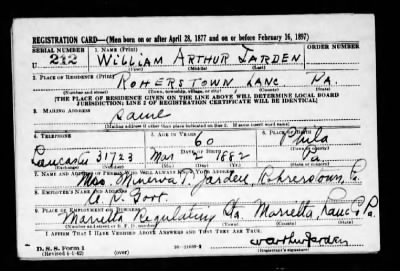 REGISTRATION CARD—(Men born on or after April 28, 1877 and on or before February 16, 1897)
SERIAL NUMBER 1. NAME (Print) ORDER NUMBER
U 212 WILLIAM ARTHUR JARDEN
(First) (Middle) (Last)
2. PLACE OF RESIDENCE (Print)
ROHERSTOWN, LANC PA.
(Number and street) (Town, township, village, or city) (County) (State)
[THE PLACE OF RESIDENCE GIVEN ON THE LINE ABOVE WILL DETERMINE LOCAL BOARD
JURISDICTION; LINE 2 OF REGISTRATION CERTIFICATE WILL BE IDENTICAL]
3. MAILING ADDRESS
Same
[Mailing address if other than place indicated on line 2. If same insert word same]
4. TELEPHONE 5. AGE IN YEARS 6. PLACE OF BIRTH
60 Phila
DATE OF BIRTH
Lancaster 31723 Mar 2 1882 Pa.
7. NAME AND ADDRESS OF PERSON WHO WILL ALWAYS KNOW YOUR ADDRESS
Mrs. Minerva Jarden, Rohrerstown, Pa
8. EMPLOYER'S NAME AND ADDRESS
U. S. Govt.
9. PLACE OF EMPLOYMENT OR BUSINESS
Marietta Regulating Sta. Marietta, Lanc Pa.
(Number and street or R. F. D. number) (Town) (County) (State)
I AFFIRM THAT I HAVE VERIFIED ABOVE ANSWERS AND THAT THEY ARE TRUE.
W Arthur Jarden
D. S. S. Form 1
(Revised 4-1-42) (over) (Registrant's signature)